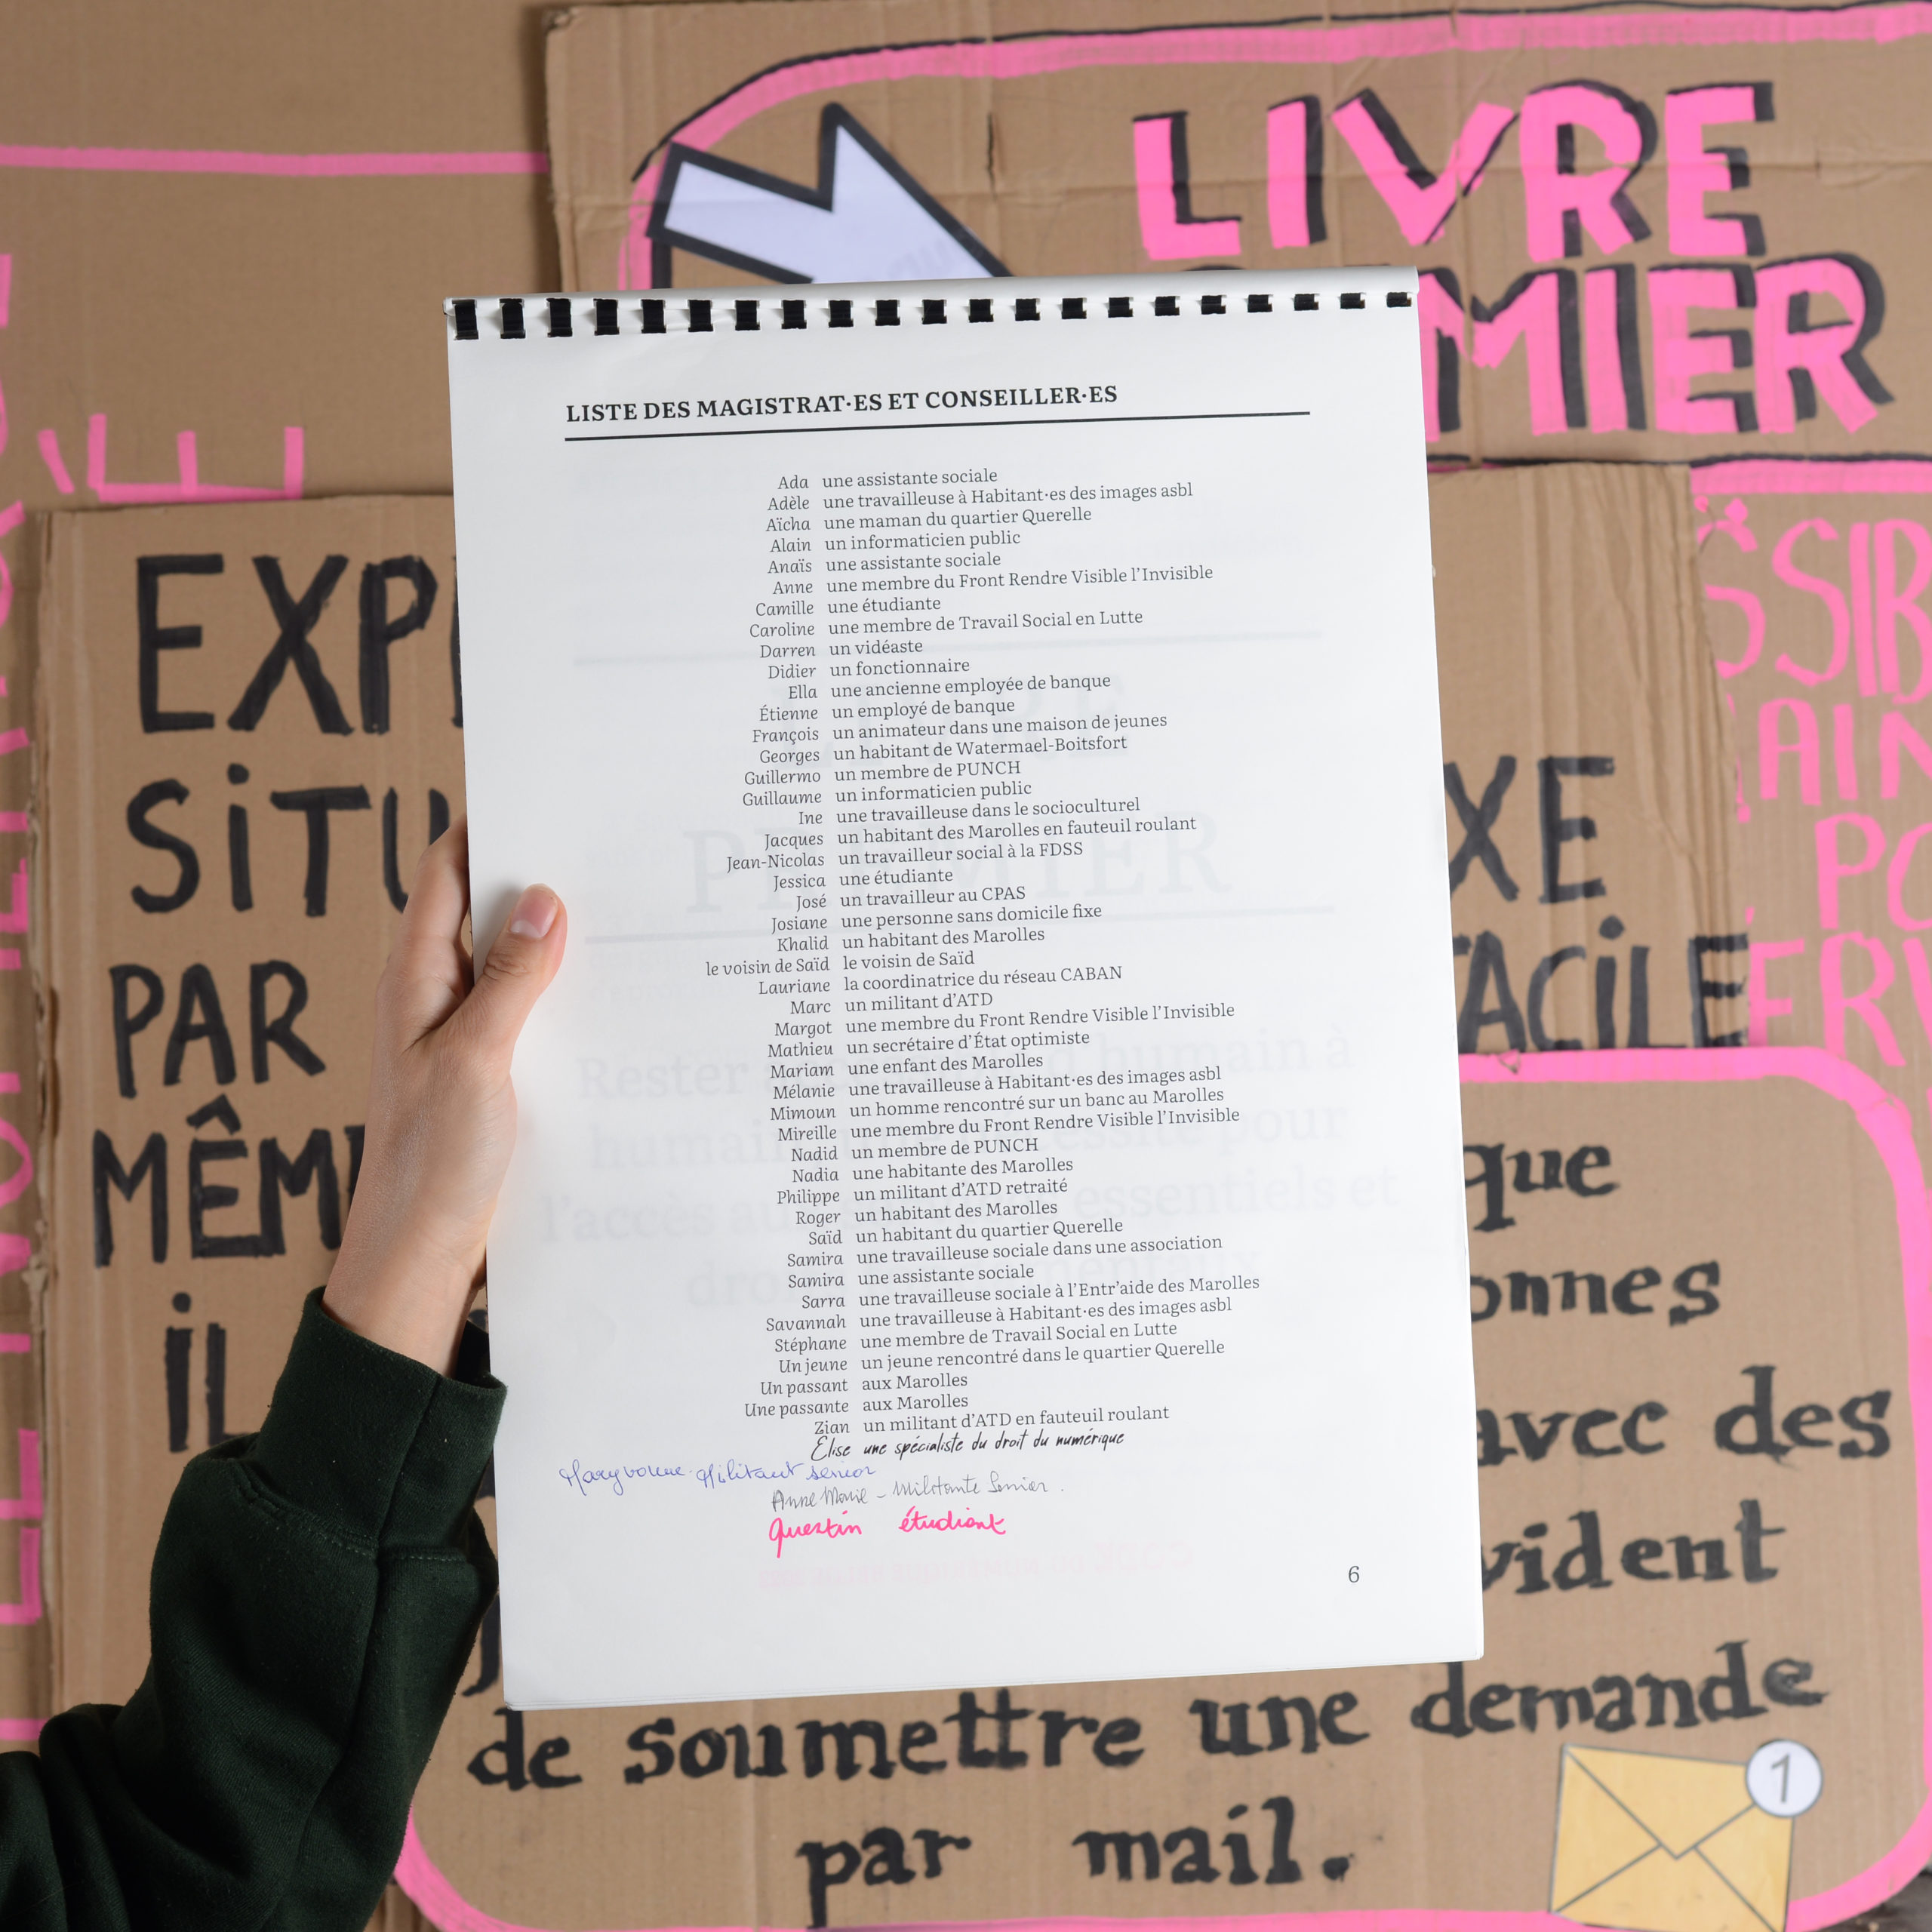 LIVRE
MIER
LISTE DES MAGISTRAT·ES ET CONSEILLER·ES
Ada une assistante sociale
Adèle une travailleuse à Habitant·es des images asbl
Aïcha une maman du quartier Querelle
Alain un informaticien public
Anaïs une assistante sociale
Anne une membre du Front Rendre Visible l'Invisible
Camille une étudiante
Caroline une membre de Travail Social en Lutte
Darren un vidéaste
Didier un fonctionnaire
Ella une ancienne employée de banque
Étienne un employé de banque
François un animateur dans une maison de jeunes
Georges un habitant de Watermael-Boitsfort
Guillermo un membre de PUNCH
Guillaume un informaticien public
Ine une travailleuse dans le socioculturel
Jacques un habitant des Marolles en fauteuil roulant
Jean-Nicolas un travailleur social à la FDSS
Jessica une étudiante
José un travailleur au CPAS
Josiane une personne sans domicile fixe
Khalid un habitant des Marolles
le voisin de Saïd le voisin de Saïd
Lauriane la coordinatrice du réseau CABAN
Marc un militant d'ATD
Margot une membre du Front Rendre Visible l'Invisible
Mathieu un secrétaire d'État optimiste
Mariam une enfant des Marolles
Mélanie une travailleuse à Habitant·es des images asbl
Mimoun un homme rencontré sur un banc au Marolles
Mireille une membre du Front Rendre Visible l'Invisible
Nadid un membre de PUNCH
Nadia une habitante des Marolles
Philippe un militant d'ATD retraité
Roger un habitant des Marolles
Saïd un habitant du quartier Querelle
Samira une travailleuse sociale dans une association
Samira une assistante sociale
Sarra une travailleuse sociale à l'Entr'aide des Marolles
Savannah une travailleuse à Habitant·es des images asbl
Stéphane une membre de Travail Social en Lutte
Un jeune un jeune rencontré dans le quartier Querelle
Un passant aux Marolles
Une passante aux Marolles
Zian un militant d'ATD en fauteuil roulant
Elise une spécialiste du droit du numérique
Maryvonne - Militant senior
Anne Marie - Militante Senior.
Quentin étudiant
6
EXP
SiTU
PAR
MÊM
iL
XE
TACiLE
SSIB
AIN
PO
ERV
que
onnes
avec des
vident
de soumettre une demande
par mail.
1